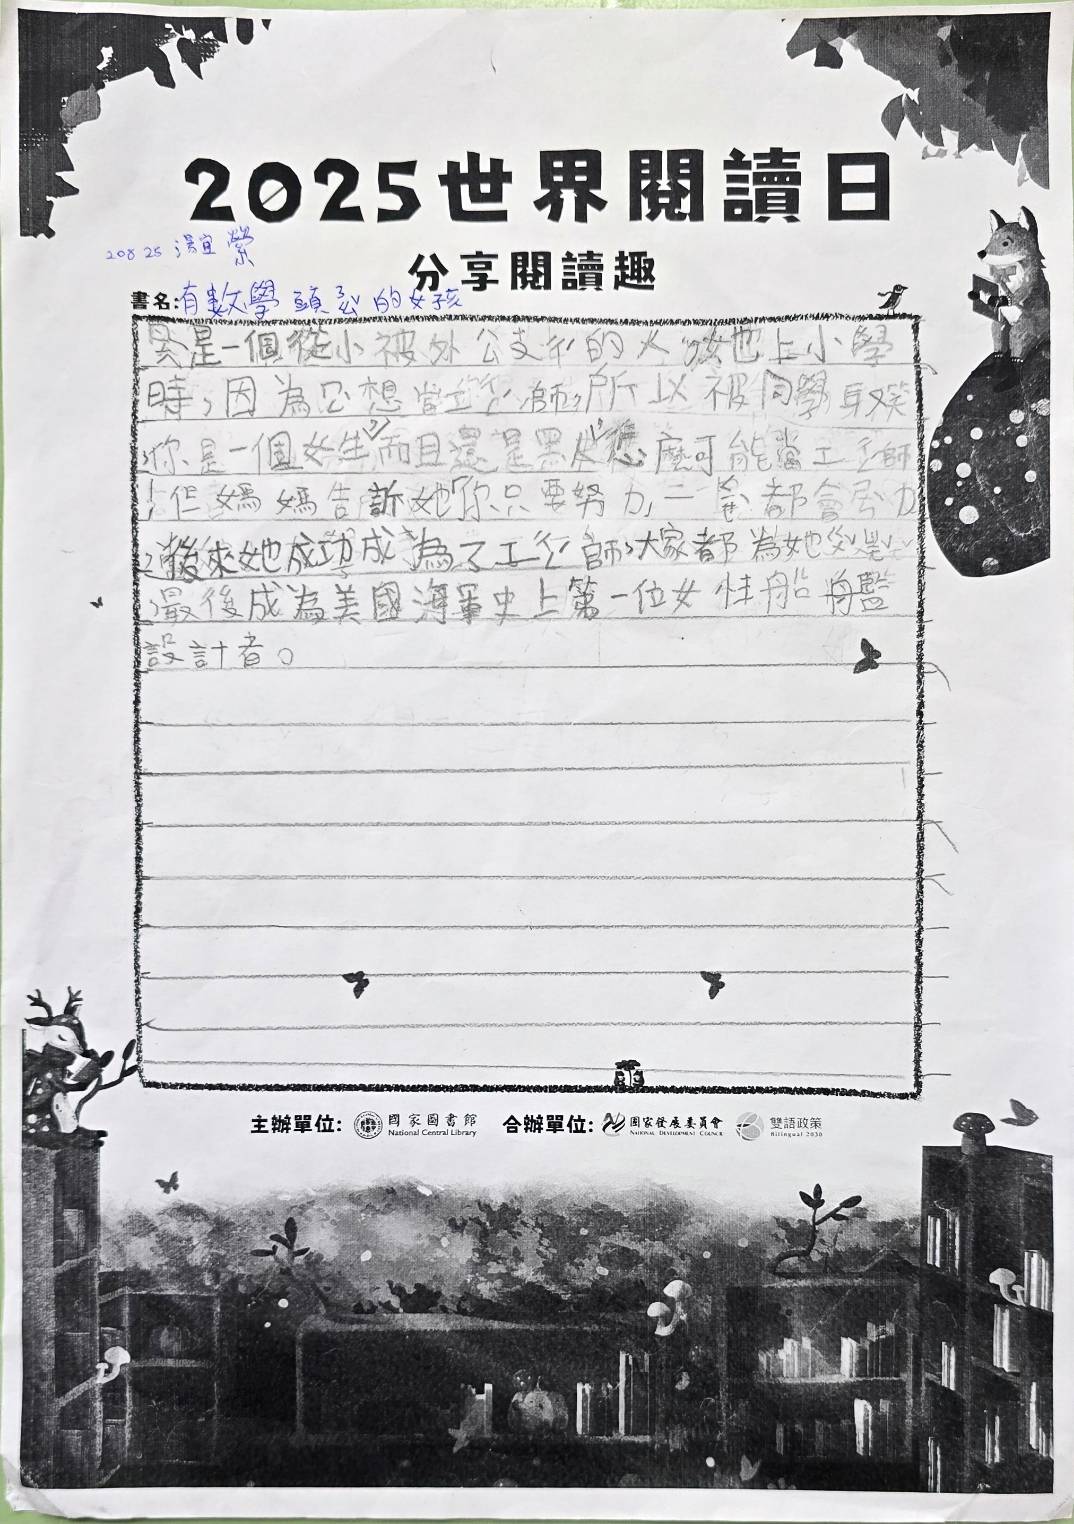 2025世界閱讀日
分享閱讀趣
20825 湯宜縈
書名:有數學頭的女孩
是一個從小被外公支的人她上小學
時,因為想當工師,所以被同學取笑
,你是一個女生而且還是黑皮麼可能當工師
!但媽媽告訴她你只要努力一都會
,後來她成功成為了工師,大家都為她
,最後成為美國海軍史上第一位女船艦
設計者。
主辦單位: 國家圖書館 合辦單位: 國家發展委員會 雙語政策
National Central Library NATIONAL DEVELOPMENT COUNCIL Bilingual 2030